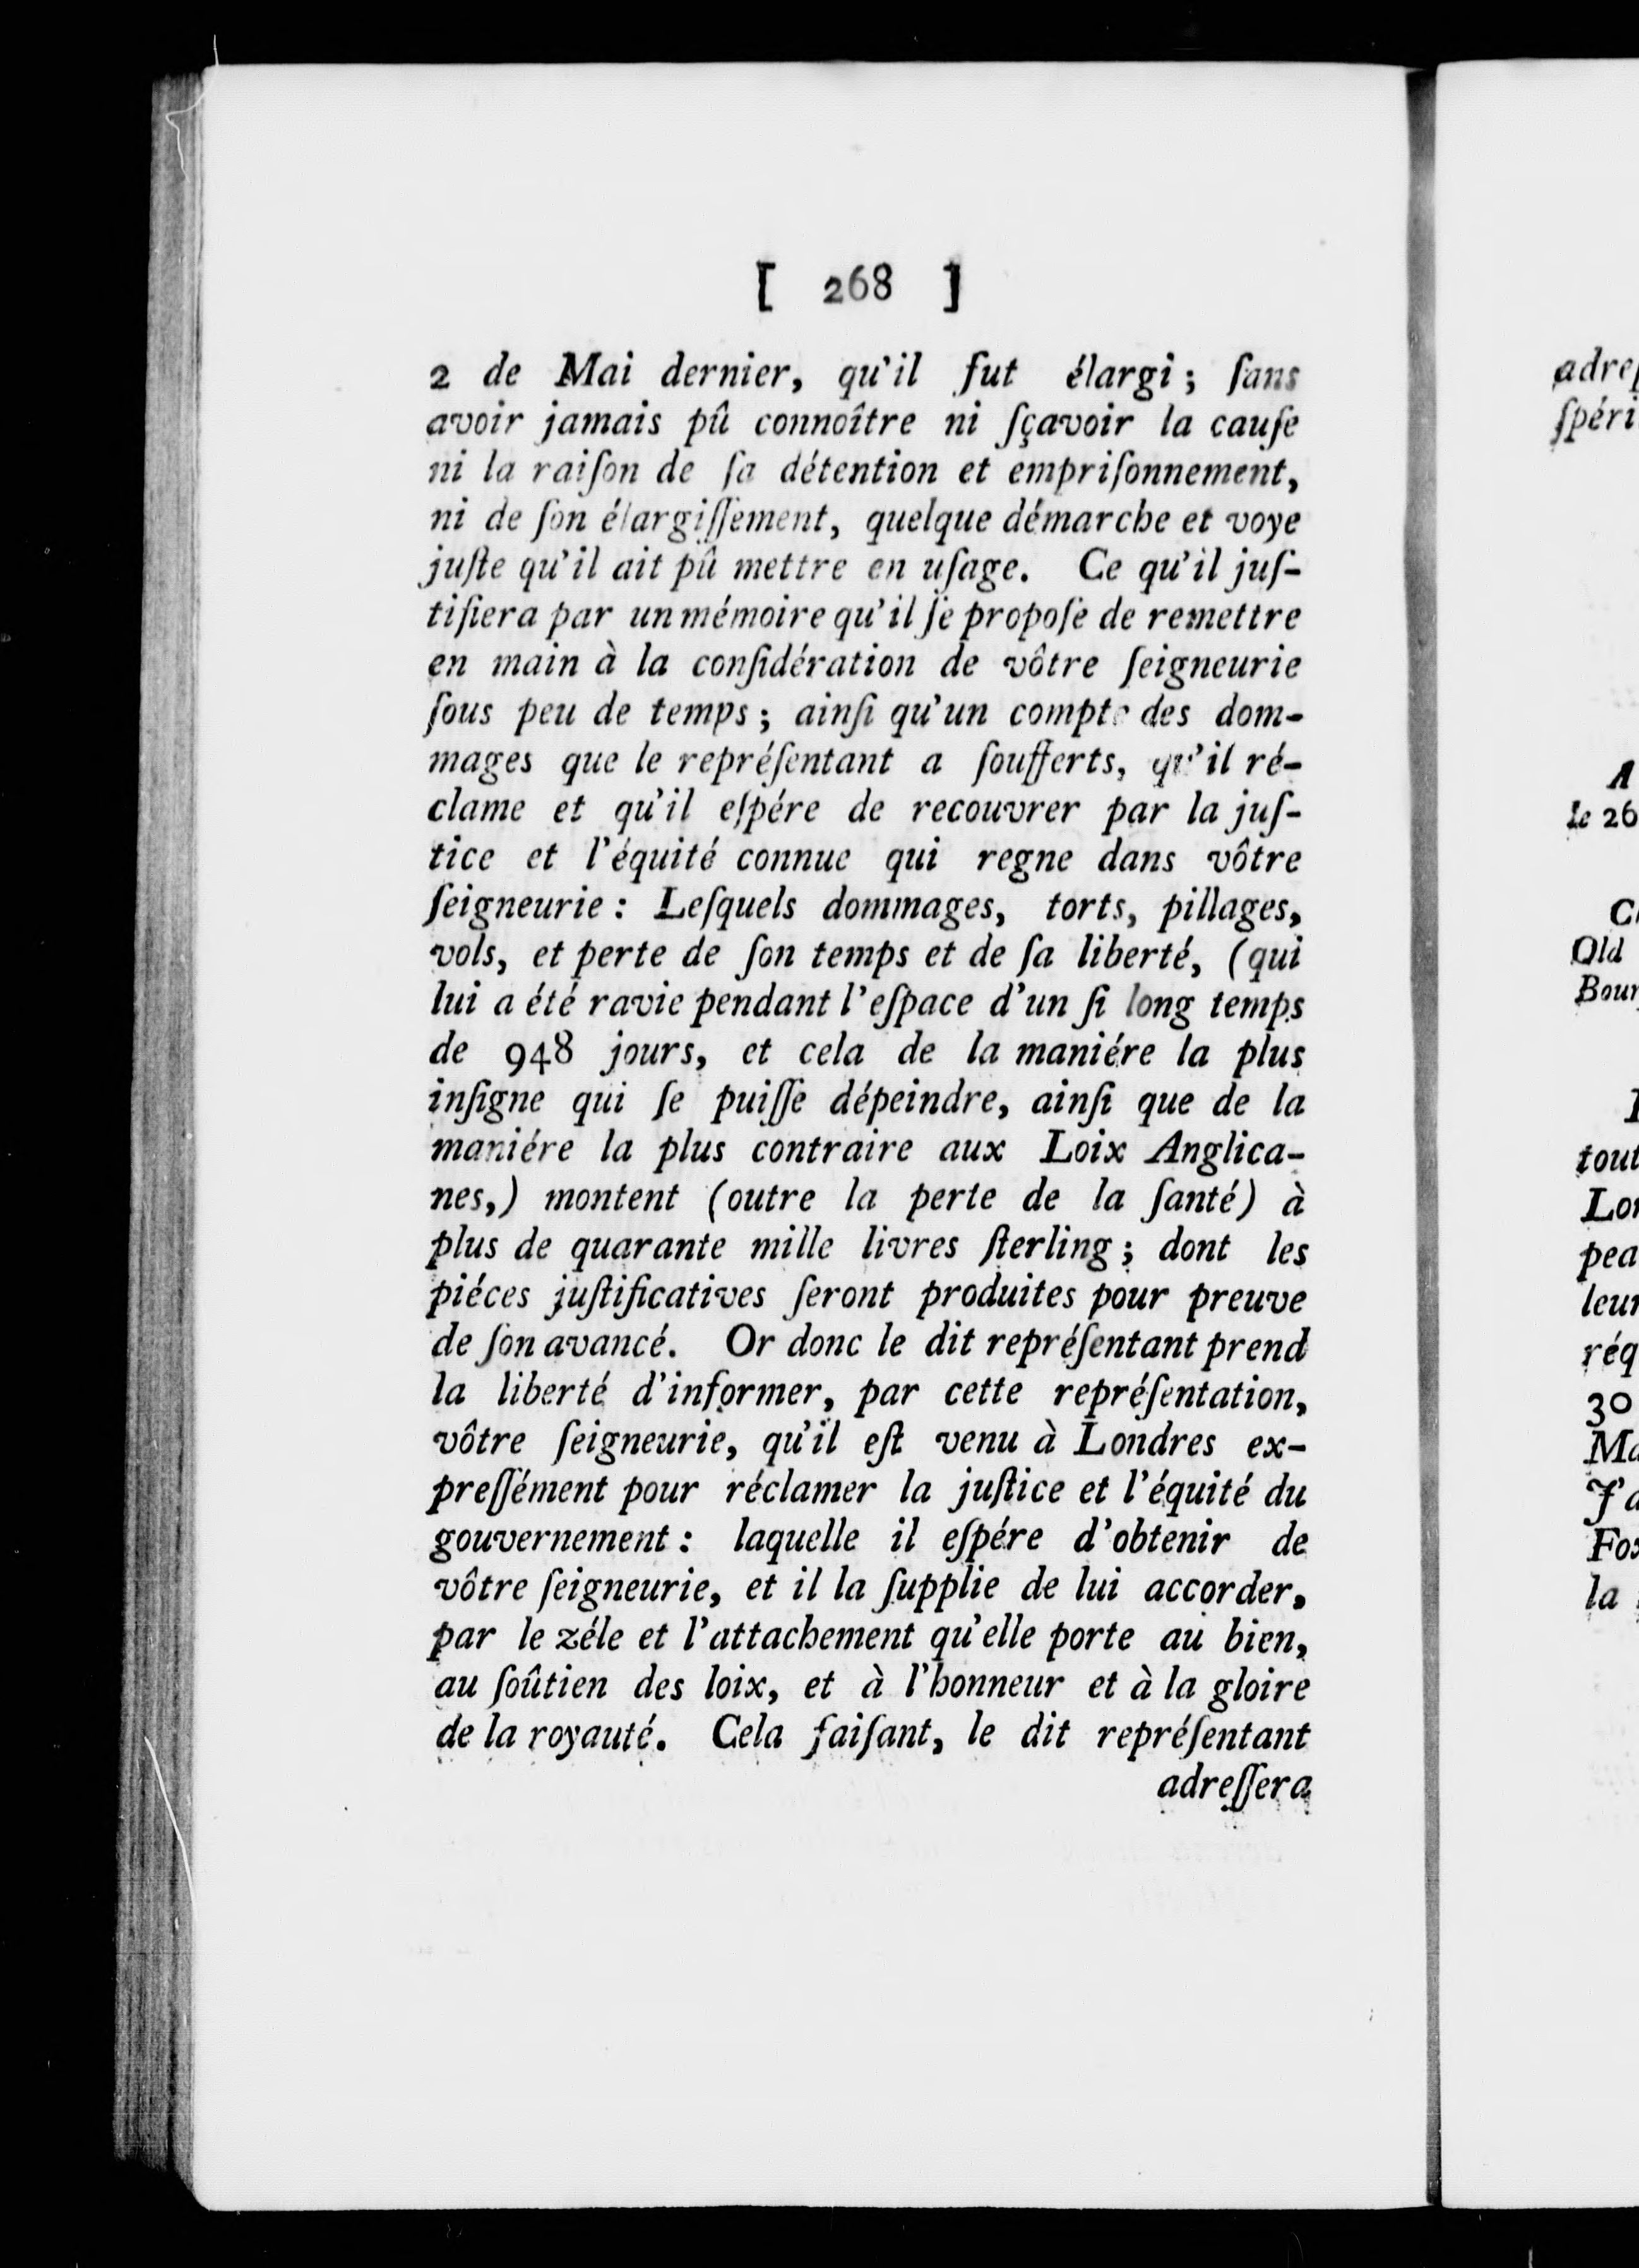 [ 268 ]
2 de Mai dernier, qu'il fut élargi; ſans
avoir jamais pû connoître ni ſçavoir la cauſe
ni la raiſon de ſa détention et empriſonnement,
ni de ſon élargiſſement, quelque démarche et voye
juſte qu'il ait pû mettre en uſage. Ce qu'il juſ-
tifiera par un mémoire qu'il ſe propoſe de remettre
en main à la conſidération de vôtre ſeigneurie
ſous peu de temps; ainſi qu'un compte des dom-
mages que le repréſentant a ſoufferts, qu'il ré-
clame et qu'il eſpére de recouvrer par la juſ-
tice et l'équité connue qui regne dans vôtre
ſeigneurie: Leſquels dommages, torts, pillages,
vols, et perte de ſon temps et de ſa liberté, (qui
lui a été ravie pendant l'eſpace d'un ſi long temps
de 948 jours, et cela de la maniére la plus
inſigne qui ſe puiſſe dépeindre, ainſi que de la
maniére la plus contraire aux Loix Anglica-
nes,) montent (outre la perte de la ſanté) à
plus de quarante mille livres ſterling; dont les
piéces juſtificatives ſeront produites pour preuve
de ſon avancé. Or donc le dit repréſentant prend
la liberté d'informer, par cette repréſentation,
vôtre ſeigneurie, qu'il eſt venu à Londres ex-
preſſément pour réclamer la juſtice et l'équité du
gouvernement: laquelle il eſpére d'obtenir de
vôtre ſeigneurie, et il la ſupplie de lui accorder,
par le zéle et l'attachement qu'elle porte au bien,
au ſoûtien des loix, et à l'honneur et à la gloire
de la royauté. Cela faiſant, le dit repréſentant
adreſſera
A
le 26
Old
30
la